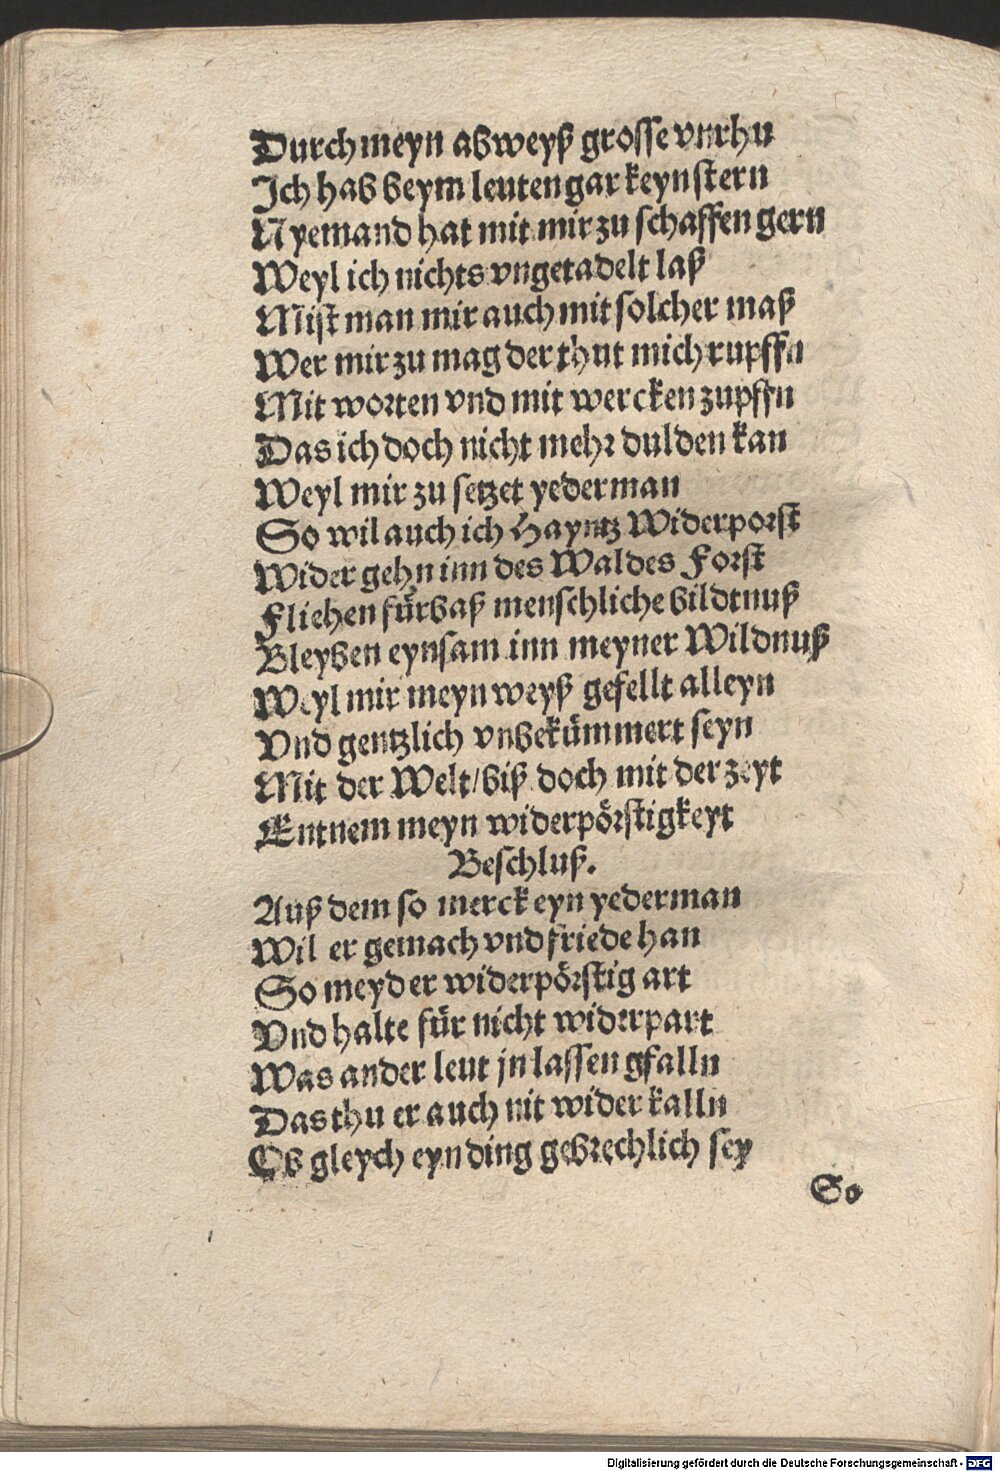 Durch meyn abweyß grosse vnrhu
Ich hab beym leuten gar keyn stern
Nyemand hat mit mir zu schaffen gern
Weyl ich nichts vngetadelt laß
Mist man mir auch mit solcher maß
Wer mir zu mag der thut mich rupffn
Mit worten vnd mit wercken zupffn
Das ich doch nicht mehr dulden kan
Weyl mir zu setzet yederman
So wil auch ich Hayntz Widerporst
Wider gehn inn des Waldes Forst
Fliehen fürbaß menschliche bildtnuß
Bleyben eynsam inn meyner Wildnuß
Weyl mir meyn weyß gefellt alleyn
Vnd gentzlich vnbekümmert seyn
Mit der Welt/ biß doch mit der zeyt
Entnem meyn widerpörstigkeyt
Beschluß.
Auß dem so merck eyn yederman
Wil er gemach vnd friede han
So meyd er widerpörstig art
Vnd halte für nicht widerpart
Was ander leut jn lassen gfalln
Das thu er auch nit wider kalln
Ob gleych eyn ding gebrechlich sey
So
Digitalisierung gefördert durch die Deutsche Forschungsgemeinschaft - DFG